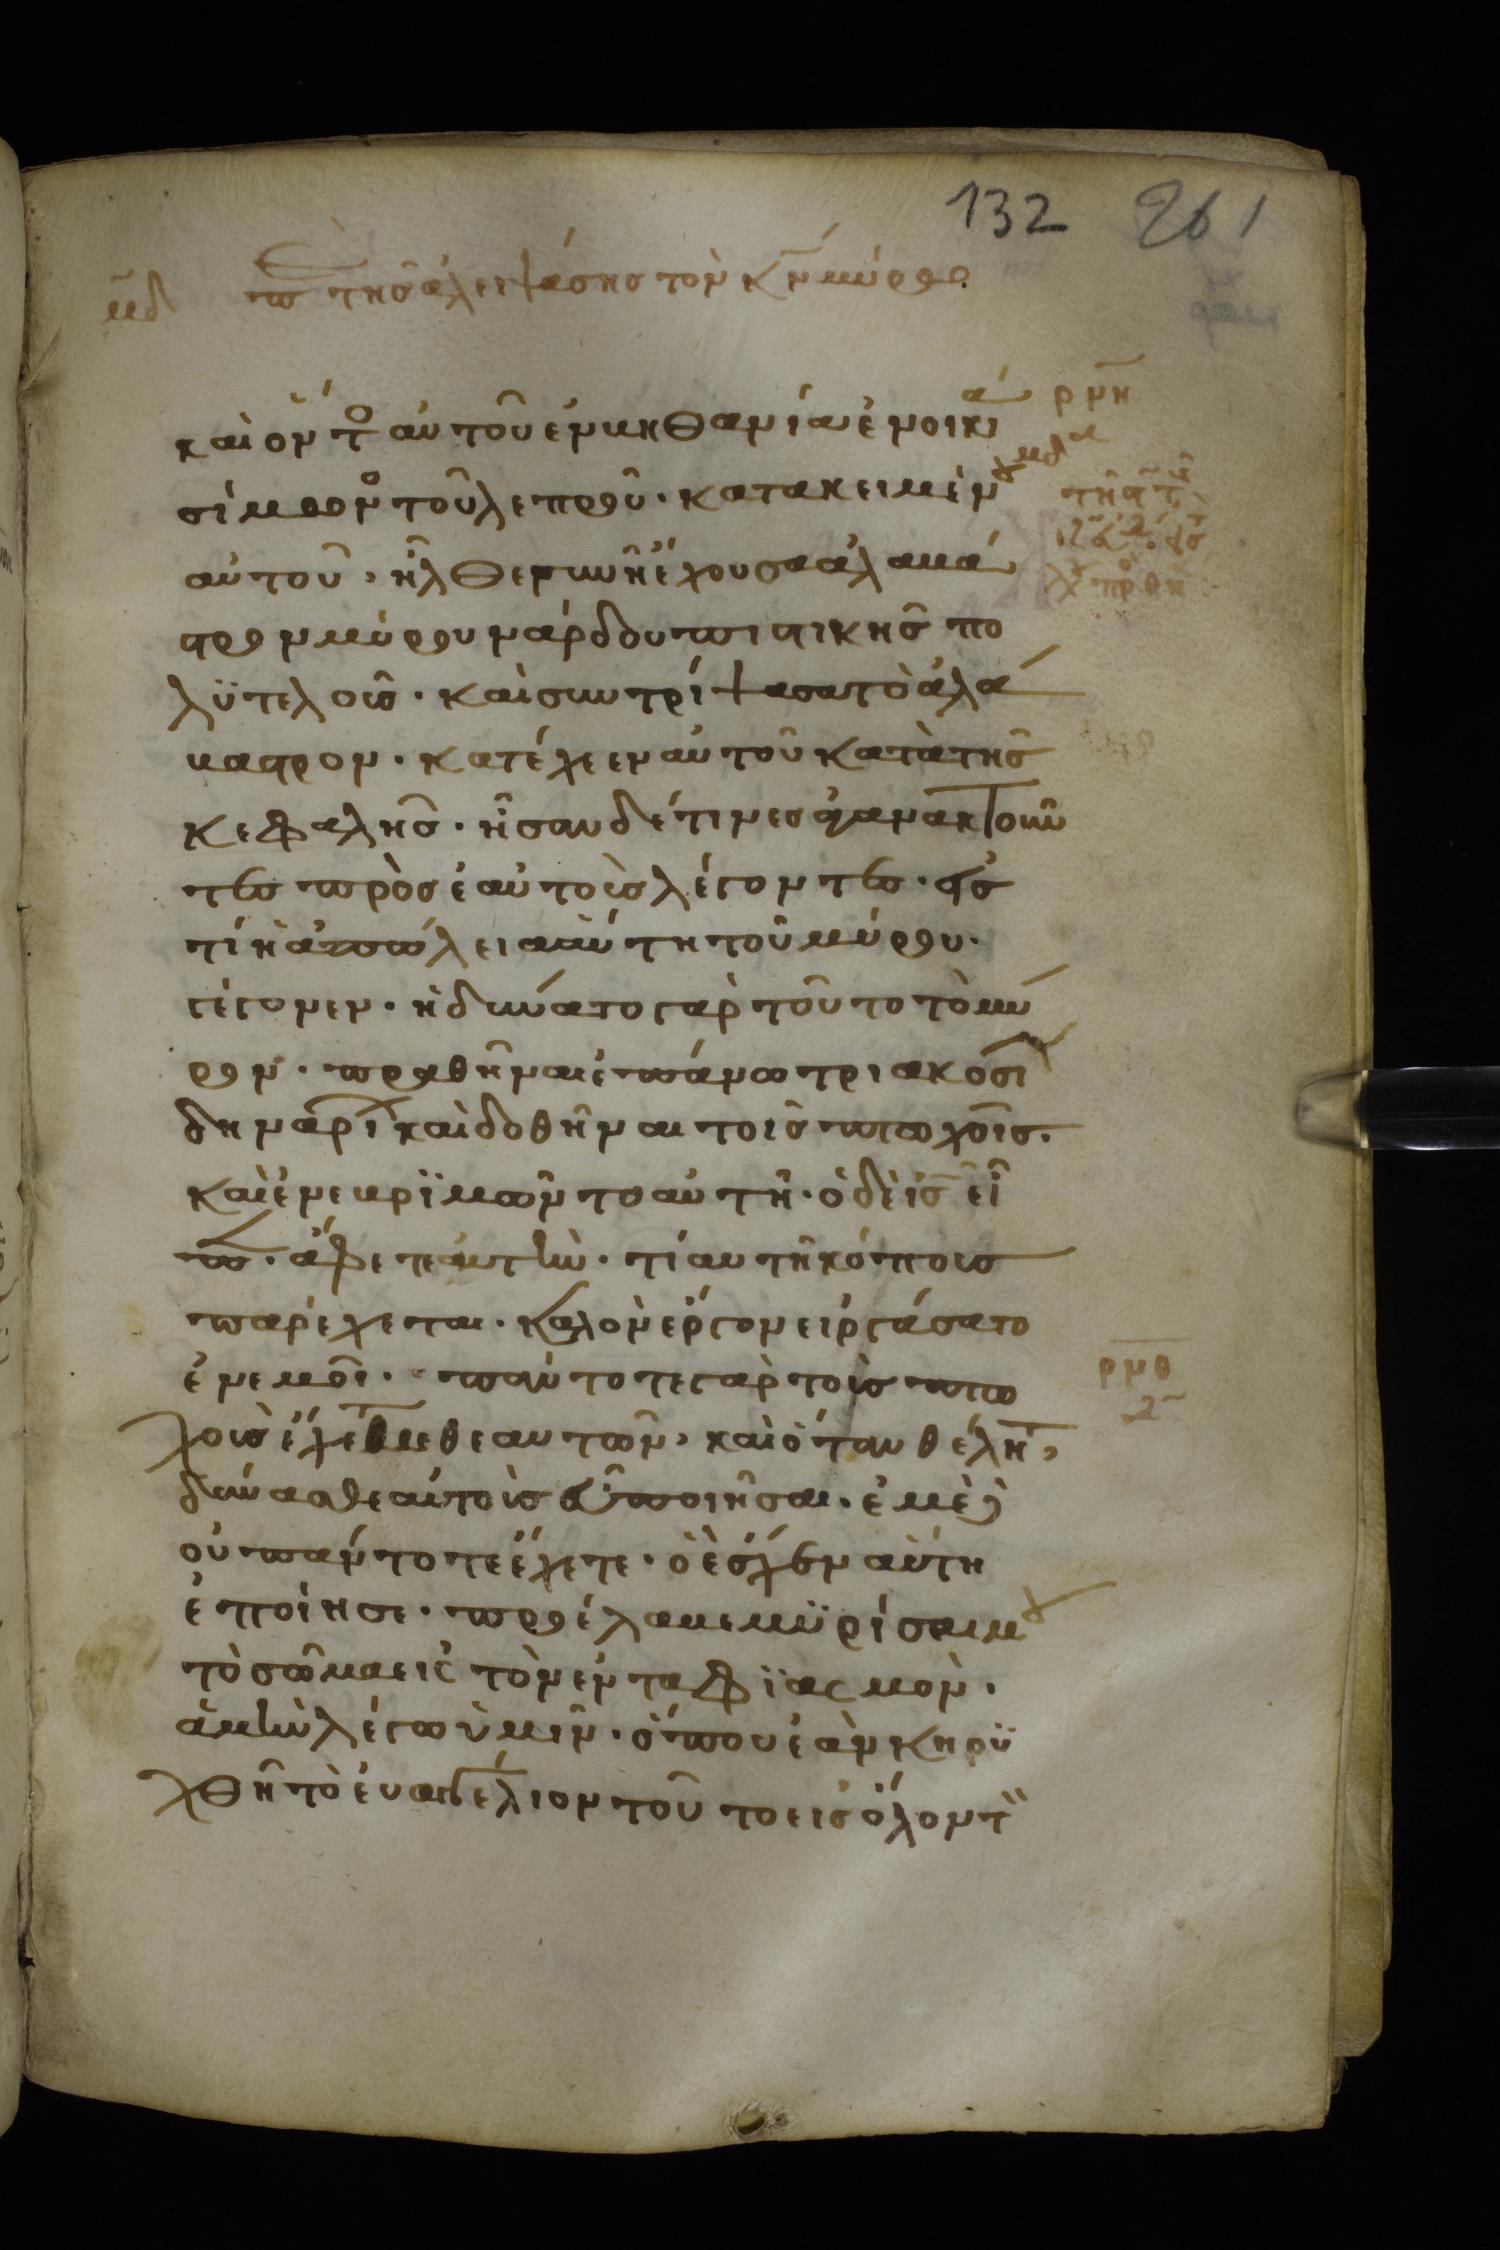 132 261
μδ π τῆς ἀλειψάσης τὸν κν μύρω
καὶ ὄντο αὐτοῦ ἐν βηθανία ἐν οικία
ρμη
σίμωνο τοῦ λεπροῦ · κατακειμένου
αὐτοῦ · ἦλθεν γυνὴ ἔχουσα ἀλαβά
στρον μύρου νάρδου πιστικῆς πο
λϋτελοῦς · καὶ συντρίψασα τὸ ἀλά
βαστρον · κατέχεεν αὐτοῦ κατὰ τῆς
κεφαλῆς · ἦσαν δέ τινες ἀγανακτοῦν
τες πρὸς ἑαυτοὺς λέγοντες · εἰς
τί ἡ ἀπώλεια αὕτη τοῦ μύρου ·
γέγονεν · ἠδύνατο γὰρ τοῦτο τὸ μύ
ρον · πραθῆναι ἐπάνω τριακοσί
δηναρί καὶ δοθῆναι τοῖς πτωχοῖς ·
καὶ ἐνεβριμῶντο αὐτῆ · ὁ δὲ ις εἶ
π · ἄφετε αὐτὴν · τί αυτῆ κόπους
παρέχεται · καλὸν ἔργον εἰργάσατο
ἐν ἐμοῖ · πάντοτε γὰρ τοὺς πτω
ρμθ
χοὺς ἔχετε μεθ εαυτῶν, καὶ ὅταν θέλητ,
δύνασθε αὐτοὺς εὖ ποιῆσαι · ἐμὲ δὲ
οὐ πάντοτε ἔχετε · ὃ ἔσχεν αὕτη
ἐποίησε · προέλαβε μϋρίσαι μου
τὸ σῶμα εἰς τὸν ἐνταφϊασμὸν ·
ἀμὴν λέγω ὑμῖν · ὅπου ἐὰν κηρϋ
χθῆ τὸ ἐυαγγέλιον τοῦτο εἰς ὅλον τὸ